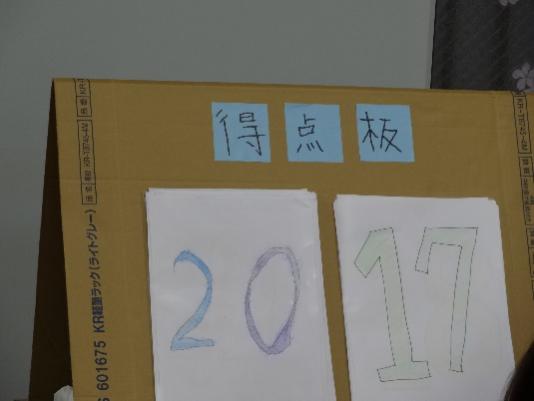 得点板
20 17
S 601675 KR軽量ラック(ライトグレー)